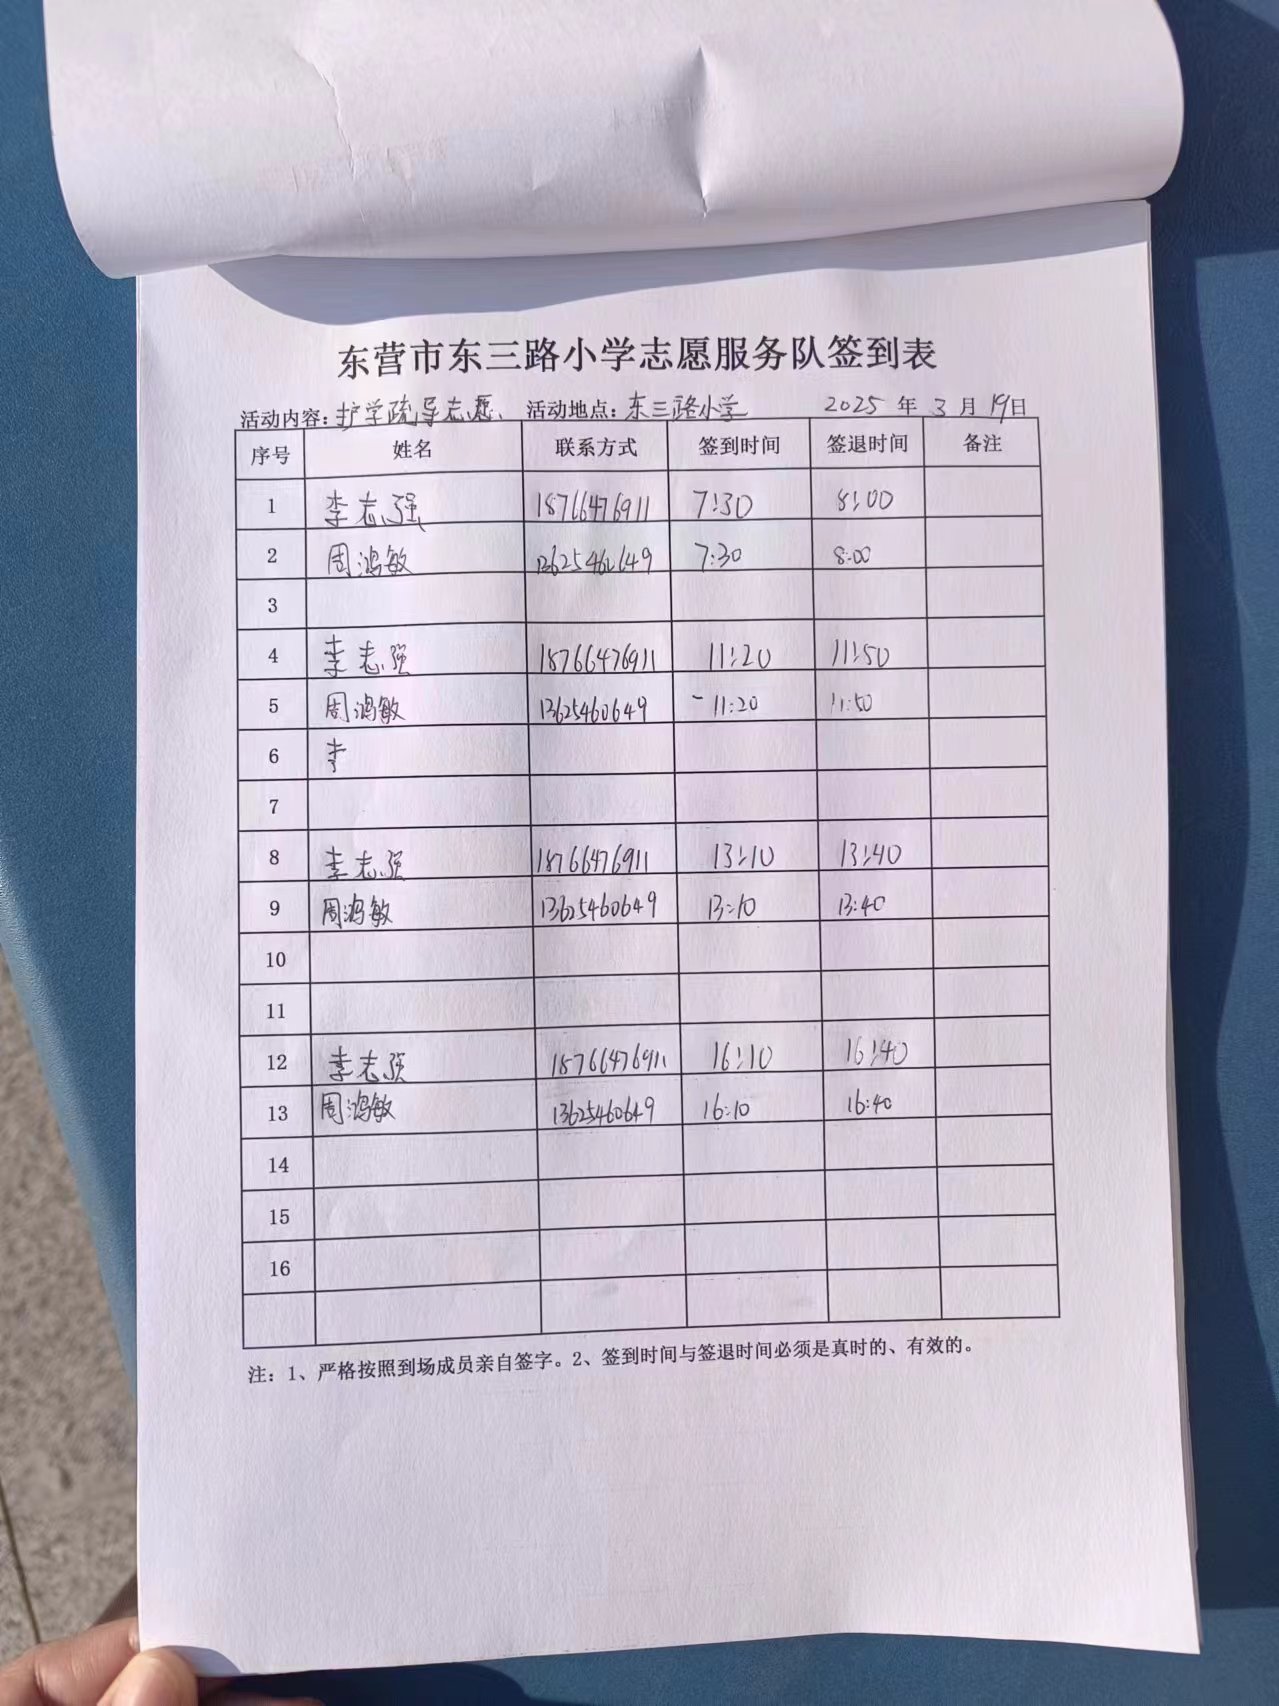 东营市东三路小学志愿服务队签到表
活动内容：护学疏导志愿、 活动地点：东三路小学 2025 年 3 月 19日
序号 姓名 联系方式 签到时间 签退时间 备注
1 李志强 18766476911 7:30 8:00
2 周鸿敏 13625460649 7:30 8:00
3
4 李志强 18766476911 11:20 11:50
5 周鸿敏 13625460649 11:20 11:50
6 李
7
8 李志强 18766476911 13:10 13:40
9 周鸿敏 13625460649 13:10 13:40
10
11
12 李志强 18766476911 16:10 16:40
13 周鸿敏 13625460649 16:10 16:40
14
15
16
注：1、严格按照到场成员亲自签字。2、签到时间与签退时间必须是真时的、有效的。